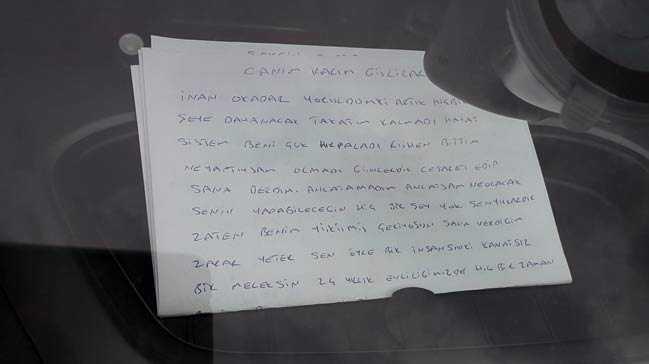 CANIM KARIM
İNAN OKADAR YORULDUMKİ ARTIK
ŞEYE DAYANACAK TAKATIM KALMADI HAYAT
SİSTEM BENİ ÇOK HIRPALADI BİTTİM
NEYAPTIYSAM OLMADI GÜNLERDİR CESARET EDİP
SANA DERDİMİ ANLATAMADIM ANLATSAM NEOLACAK
SENİN YAPABİLECEĞİN HİÇ BİR ŞEY YOK
ZATEN BENİM SANA VERDİĞİM
ZARAR YETER SEN ÖYLE BİR İNSANSINKİ KANATSIZ
BİR MELEKSİN 24 YILLIK EVLİLİĞİMİZDE HİÇ BİR ZAMAN